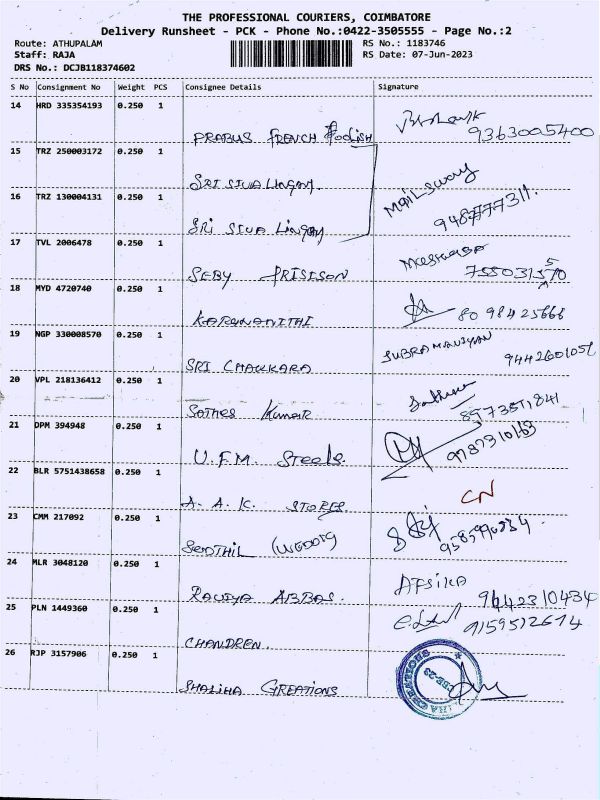 THE PROFESSIONAL COURIERS, COIMBATORE
Delivery Runsheet - PCK - Phone No.:0422-3505555 - Page No.:2
Route: ATHUPALAM RS No.: 1183746
Staff: RAJA RS Date: 07-Jun-2023
DRS No.: DCJB118374602
S No Consignment No Weight PCS Consignee Details Signature
14 HRD 335354193 0.250 1
PRABUS FRENCH Polish 9363005400
15 TRZ 250003172 0.250 1
SRI SIVA Lingam.
16 TRZ 130004131 0.250 1
SRI SIVA Lingam
17 TVL 2006478 0.250 1
SEBY PRISISON
18 MYD 4720740 0.250 1
KARUNANITHI 80 98425666
19 NGP 330008570 0.250 1 SUBRAMANIYAN
SRI CHAKKARA 9442601051
20 VPL 218136412 0.250 1
Sathes Kumar 8573511841
21 DPM 394948 0.250 1
U.F.M. Steels. 9787310163
22 BLR 5751438658 0.250 1
A. A. K. STORES CN
23 CMM 217092 0.250 1
SENTHIL
24 MLR 3048120 0.250 1 AFSIKA
RAVIYA ABBAS. 9442310434
25 PLN 1449360 0.250 1
CHANDREN. 9159512614
26 RJP 3157906 0.250 1
SHALIHA CREATIONS